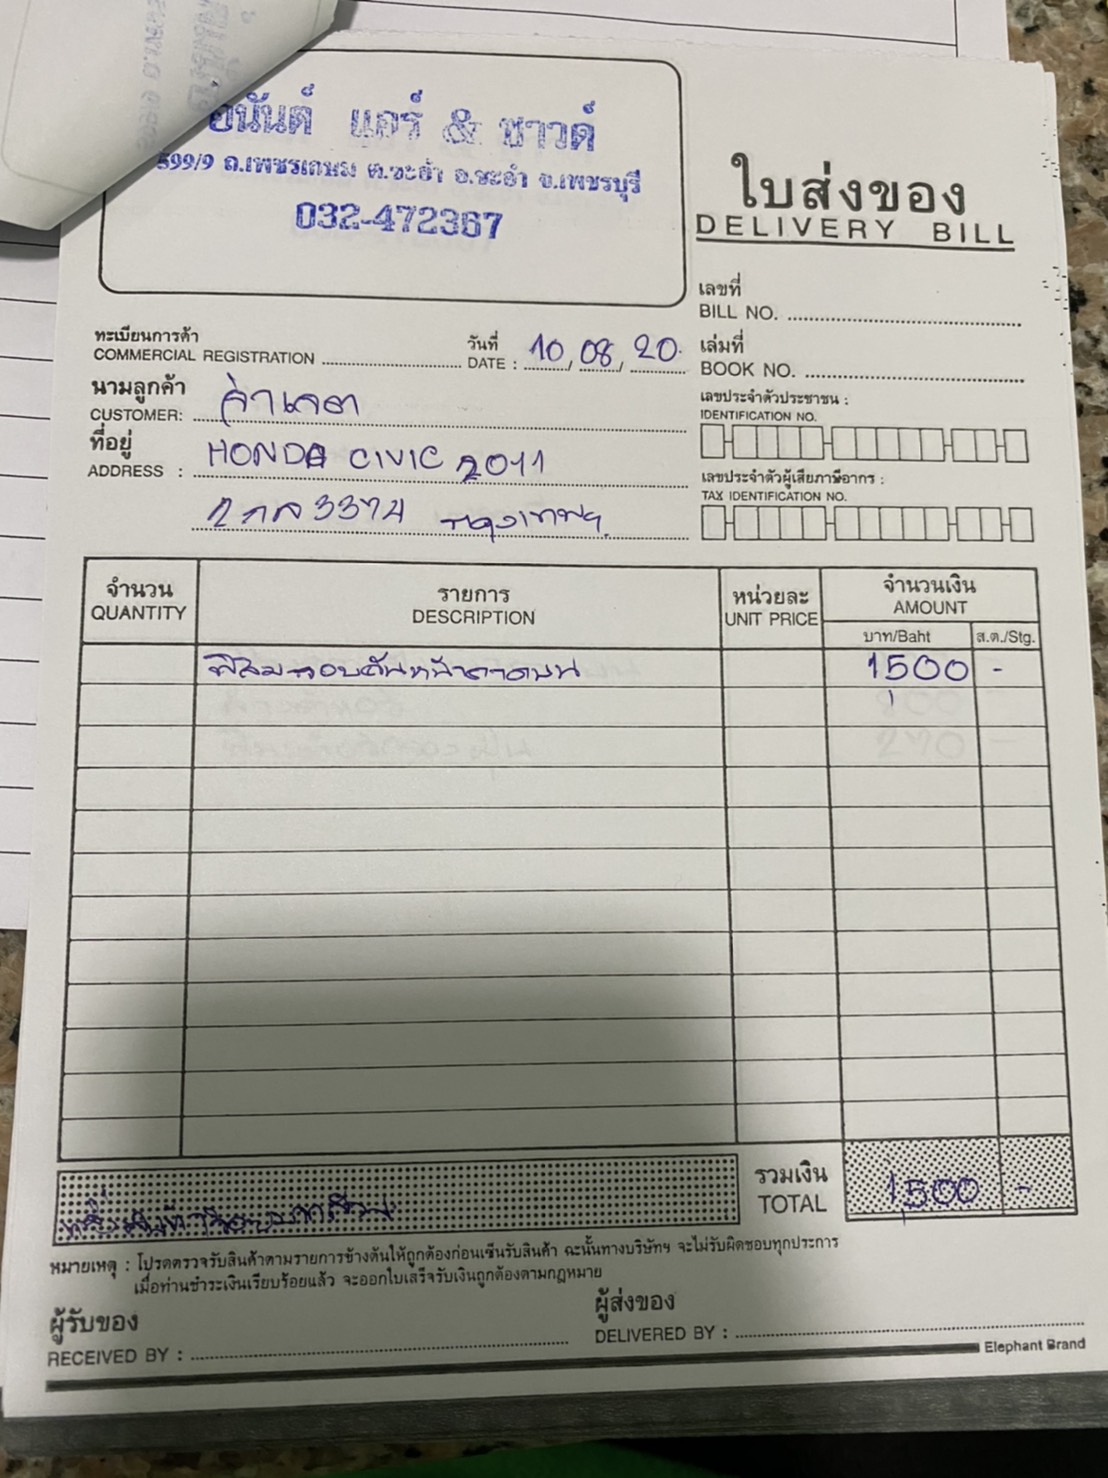 อนันต์ แอร์ & ซาวด์
599/9 ถ.เพชรเกษม ต.ชะอำ อ.ชะอำ จ.เพชรบุรี
032-472367
ใบส่งของ
DELIVERY BILL
เลขที่
BILL NO.
ทะเบียนการค้า
COMMERCIAL REGISTRATION
วันที่
DATE : 10/08/20
เล่มที่
BOOK NO.
นามลูกค้า
CUSTOMER:
เลขประจำตัวประชาชน :
IDENTIFICATION NO.
ที่อยู่ HONDA CIVIC 2011
ADDRESS :
เลขประจำตัวผู้เสียภาษีอากร :
TAX IDENTIFICATION NO.
3374 กรุงเทพฯ
จำนวน รายการ หน่วยละ จำนวนเงิน
QUANTITY DESCRIPTION UNIT PRICE AMOUNT
บาท/Baht ส.ต./Stg.
ฟิล์มรอบคันหน้าคาดบน 1,500 -
รวมเงิน
TOTAL 1,500 -
หมายเหตุ : โปรดตรวจรับสินค้าตามรายการข้างต้นให้ถูกต้องก่อนเซ็นรับสินค้า ฉะนั้นทางบริษัทฯ จะไม่รับผิดชอบทุกประการ
เมื่อท่านชำระเงินเรียบร้อยแล้ว จะออกใบเสร็จรับเงินถูกต้องตามกฎหมาย
ผู้รับของ
RECEIVED BY :
ผู้ส่งของ
DELIVERED BY :
Elephant Brand